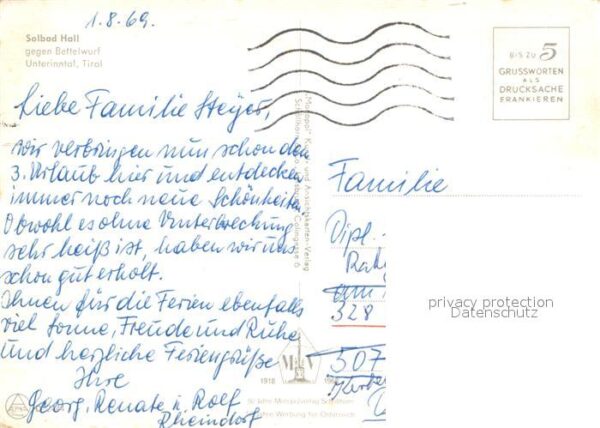 1.8.69.
Solbad Hall
gegen Bettelwurf
Unterinntal, Tirol
BIS ZU 5
GRUSSWORTEN
ALS
DRUCKSACHE
FRANKIEREN
Liebe Familie Steyer,
wir verbringen nun schon den
3. Urlaub hier und entdecken
immer noch neue Schönheiten.
Obwohl es ohne Unterbrechung
sehr heiß ist, haben wir uns
schon gut erholt.
Ihnen für die Ferien ebenfalls
viel Sonne, Freude und Ruhe
und herzliche Feriengrüße
Ihre
Georg, Renate u. Rolf
Rheindorf
Familie
Dipl.
328
507
privacy protection
Datenschutz
1918